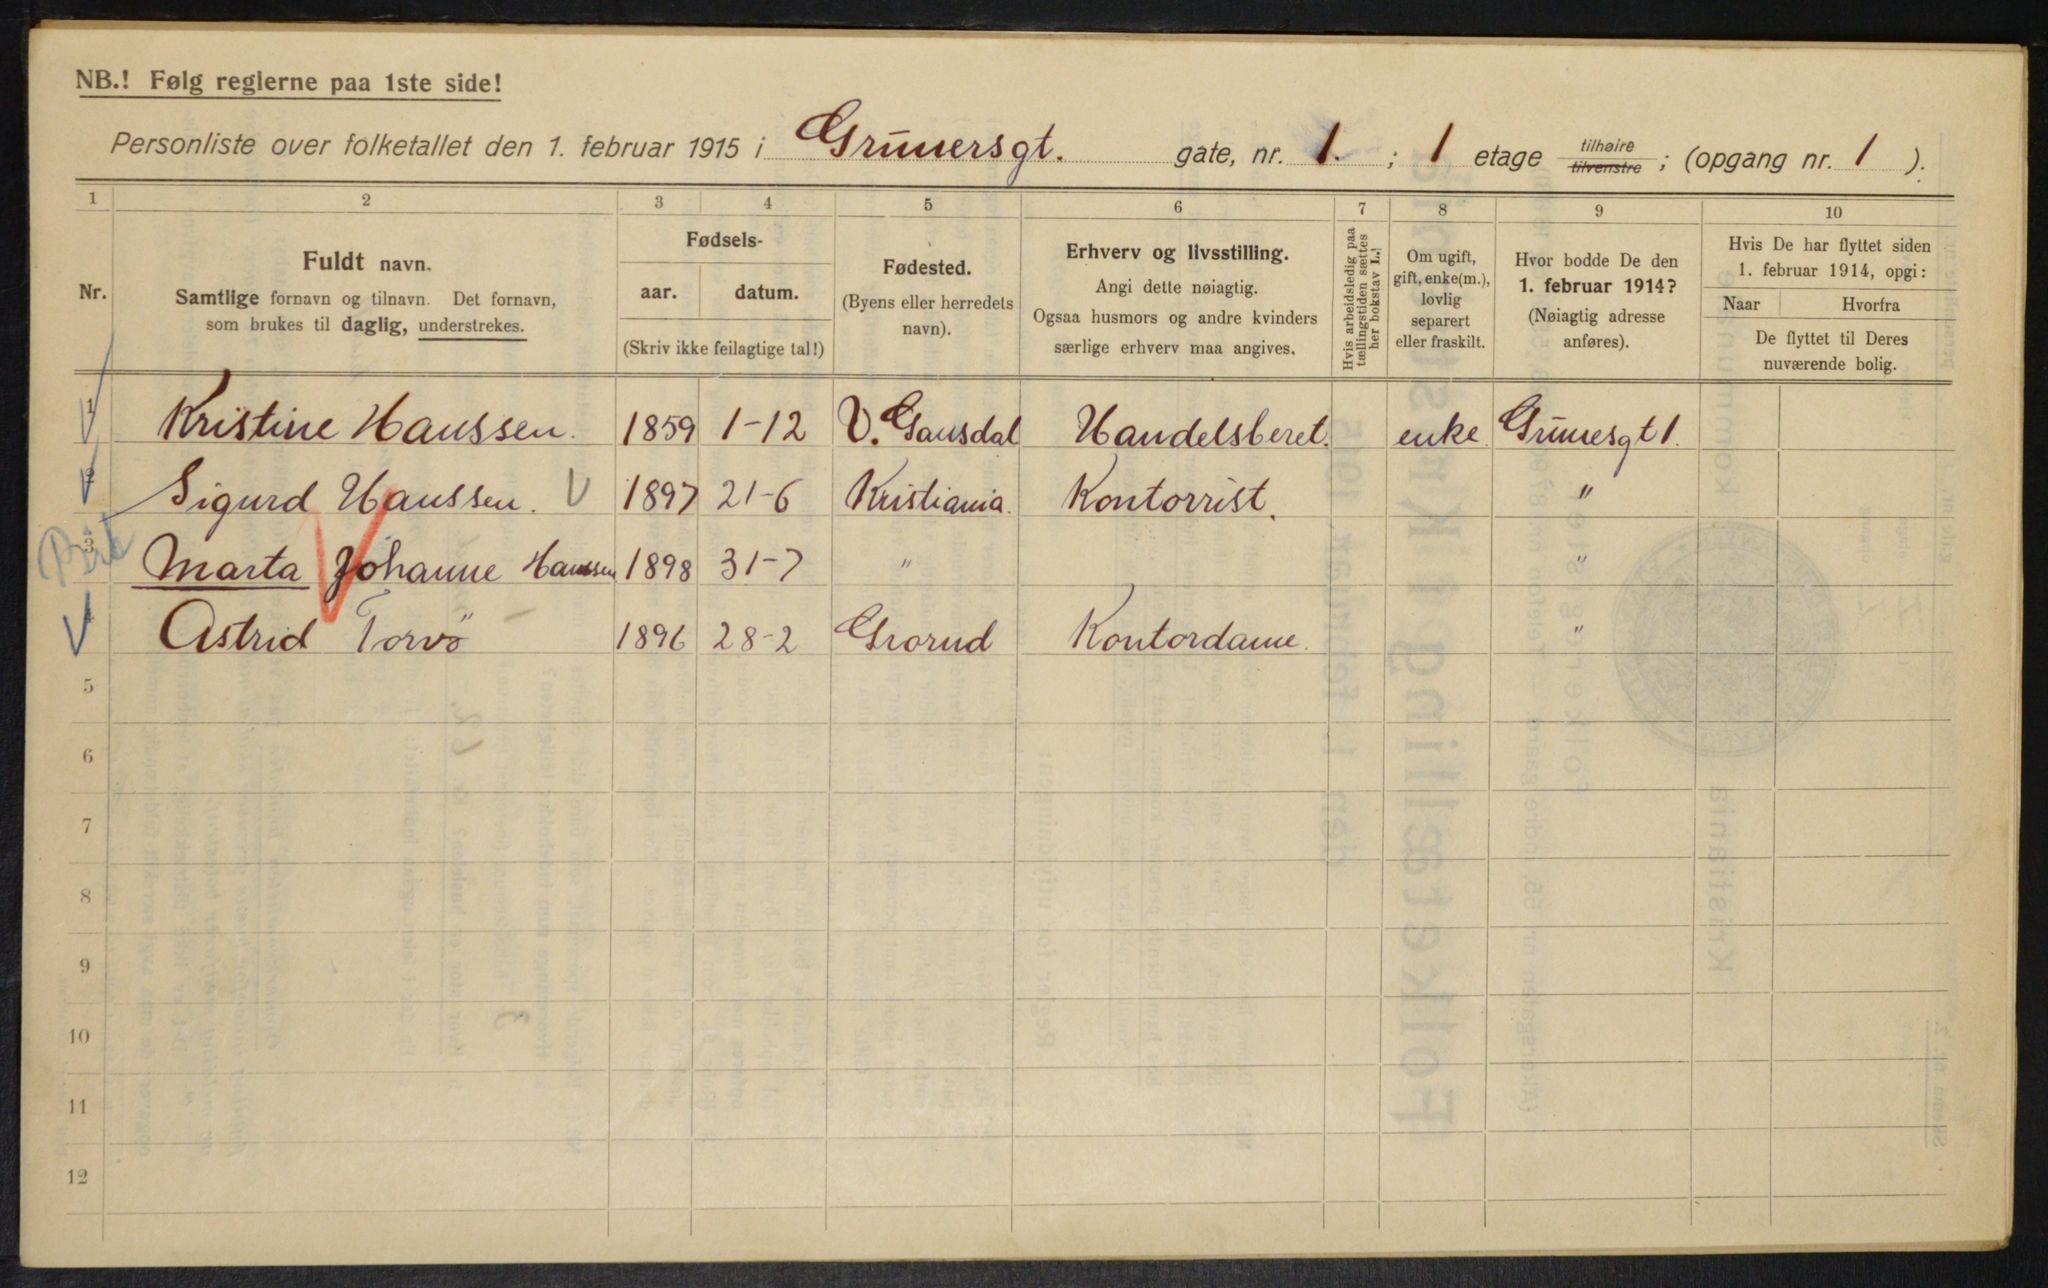 NB.! Følg reglerne paa 1ste side!
Personliste over folketallet den 1. februar 1915 i Grünersgt. gate, nr. 1. ; 1 etage tilhøire tilvenstre ; (opgang nr. 1 ).
1 2 3 4 5 6 7 8 9 10
Nr.
Fuldt navn.
Samtlige fornavn og tilnavn. Det fornavn,
som brukes til daglig, understrekes.
Fødsels-
aar. datum.
(Skriv ikke feilagtige tal!)
Fødested.
(Byens eller herredets
navn).
Erhverv og livsstilling.
Angi dette nøiagtig.
Ogsaa husmors og andre kvinders
særlige erhverv maa angives.
Hvis arbeidsledig paa
tællingstiden sættes
her bokstav L.!
Om ugift,
gift, enke(m.),
lovlig
separert
eller fraskilt.
Hvor bodde De den
1. februar 1914?
(Nøiagtig adresse
anføres).
Hvis De har flyttet siden
1. februar 1914, opgi:
Naar Hvorfra
De flyttet til Deres
nuværende bolig.
1 Kristine Hanssen. 1859 1-12 V. Gausdal Handelsberet. enke Grünesgt 1.
2 Sigurd Hanssen. 1897 21-6 Kristiania. Kontorrist. "
3 Marta Johanne Hanssen 1898 31-7 " "
4 Astrid Torvö 1896 28-2 Grorud Kontordame. "
5
6
7
8
9
10
11
12